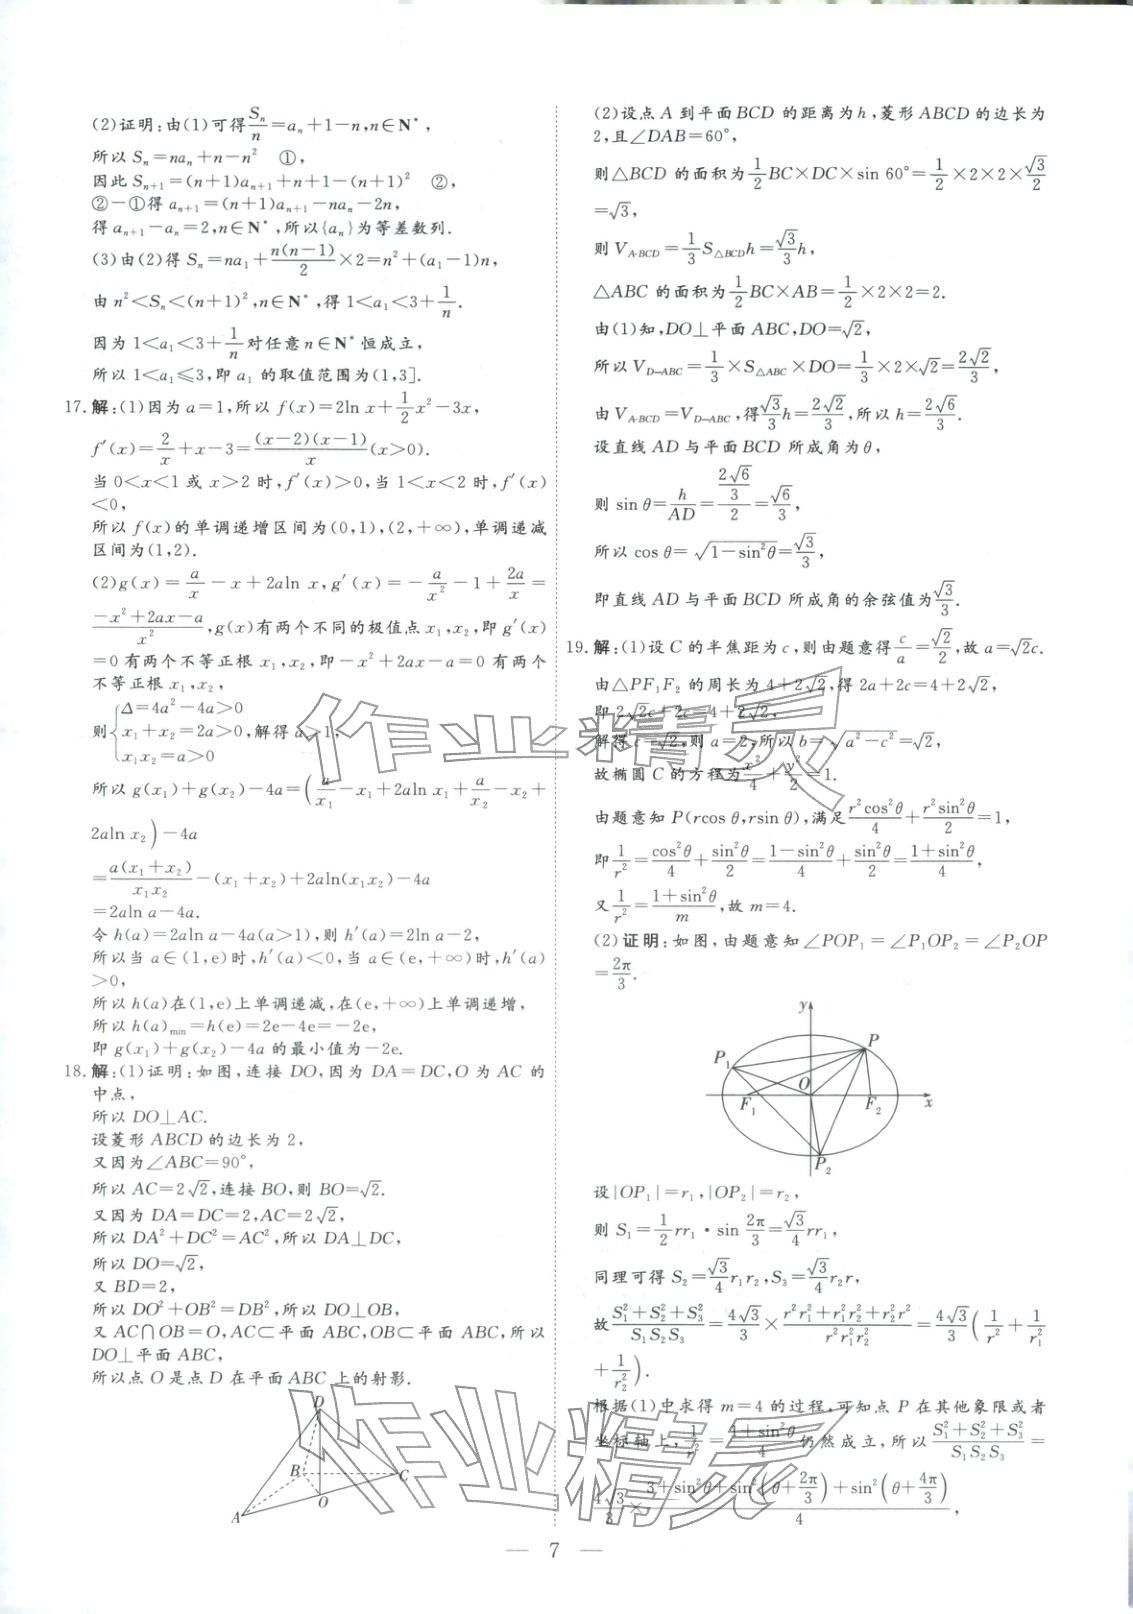 (2)证明:由(1)可得\frac{S_n}{n}=a_n+1-n,n∈N*,
所以 S_n=na_n+n-n² ①,
因此 S_{n+1}=(n+1)a_{n+1}+n+1-(n+1)² ②,
②-①得 a_{n+1}=(n+1)a_{n+1}-na_n-2n,
得 a_{n+1}-a_n=2,n∈N*,所以{a_n}为等差数列.
(3)由(2)得 S_n=na_1+\frac{n(n-1)}{2}×2=n²+(a_1-1)n,
由 n²<S_n<(n+1)²,n∈N*,得 1<a_1<3+\frac{1}{n}.
因为 1<a_1<3+\frac{1}{n}对任意 n∈N*恒成立,
所以 1<a_1≤3,即 a_1 的取值范围为(1,3].
17.解:(1)因为 a=1,所以 f(x)=2ln x+\frac{1}{2}x²-3x,
f′(x)=\frac{2}{x}+x-3=\frac{(x-2)(x-1)}{x}(x>0).
当 0<x<1 或 x>2 时,f′(x)>0,当 1<x<2 时,f′(x)
<0,
所以 f(x)的单调递增区间为(0,1),(2,+∞),单调递减
区间为(1,2).
(2)g(x)=\frac{a}{x}-x+2aln x,g′(x)=-\frac{a}{x²}-1+\frac{2a}{x}=
\frac{-x²+2ax-a}{x²},g(x)有两个不同的极值点 x_1,x_2,即 g′(x)
=0 有两个不等正根 x_1,x_2,即-x²+2ax-a=0 有两个
不等正根 x_1,x_2,
则{Δ=4a²-4a>0
x_1+x_2=2a>0,解得 a>1,
x_1x_2=a>0
所以 g(x_1)+g(x_2)-4a=(\frac{a}{x_1}-x_1+2aln x_1+\frac{a}{x_2}-x_2+
2aln x_2)-4a
=\frac{a(x_1+x_2)}{x_1x_2}-(x_1+x_2)+2aln(x_1x_2)-4a
=2aln a-4a.
令 h(a)=2aln a-4a(a>1),则 h′(a)=2ln a-2,
所以当 a∈(1,e)时,h′(a)<0,当 a∈(e,+∞)时,h′(a)
>0,
所以 h(a)在(1,e)上单调递减,在(e,+∞)上单调递增,
所以 h(a)_{min}=h(e)=2e-4e=-2e,
即 g(x_1)+g(x_2)-4a 的最小值为-2e.
18.解:(1)证明:如图,连接 DO,因为 DA=DC,O 为 AC 的
中点,
所以 DO⊥AC.
设菱形 ABCD 的边长为 2,
又因为∠ABC=90°,
所以 AC=2√2,连接 BO,则 BO=√2.
又因为 DA=DC=2,AC=2√2,
所以 DA²+DC²=AC²,所以 DA⊥DC,
所以 DO=√2,
又 BD=2,
所以 DO²+OB²=DB²,所以 DO⊥OB,
又 AC∩OB=O,AC⊂平面 ABC,OB⊂平面 ABC,所以
DO⊥平面 ABC,
所以点 O 是点 D 在平面 ABC 上的射影.
D
B
C
O
A
(2)设点 A 到平面 BCD 的距离为 h,菱形 ABCD 的边长为
2,且∠DAB=60°,
则△BCD 的面积为\frac{1}{2}BC×DC×sin 60°=\frac{1}{2}×2×2×\frac{√3}{2}
=√3,
则 V_{A-BCD}=\frac{1}{3}S_{△BCD}h=\frac{√3}{3}h,
△ABC 的面积为\frac{1}{2}BC×AB=\frac{1}{2}×2×2=2.
由(1)知,DO⊥平面 ABC,DO=√2,
所以 V_{D-ABC}=\frac{1}{3}×S_{△ABC}×DO=\frac{1}{3}×2×√2=\frac{2√2}{3},
由 V_{A-BCD}=V_{D-ABC},得\frac{√3}{3}h=\frac{2√2}{3},所以 h=\frac{2√6}{3}.
设直线 AD 与平面 BCD 所成角为 θ,
则 sin θ=\frac{h}{AD}=\frac{\frac{2√6}{3}}{2}=\frac{√6}{3},
所以 cos θ=\sqrt{1-sin²θ}=\frac{√3}{3},
即直线 AD 与平面 BCD 所成角的余弦值为\frac{√3}{3}.
19.解:(1)设 C 的半焦距为 c,则由题意得\frac{c}{a}=\frac{√2}{2},故 a=√2c.
由△PF_1F_2 的周长为 4+2√2,得 2a+2c=4+2√2,
即 2√2c+2c=4+2√2,
解得 c=√2,则 a=2,所以 b=\sqrt{a²-c²}=√2,
故椭圆 C 的方程为\frac{x²}{4}+\frac{y²}{2}=1.
由题意知 P(rcos θ,rsin θ),满足\frac{r²cos²θ}{4}+\frac{r²sin²θ}{2}=1,
即\frac{1}{r²}=\frac{cos²θ}{4}+\frac{sin²θ}{2}=\frac{1-sin²θ}{4}+\frac{sin²θ}{2}=\frac{1+sin²θ}{4},
又\frac{1}{r²}=\frac{1+sin²θ}{m},故 m=4.
(2)证明:如图,由题意知∠POP_1=∠P_1OP_2=∠P_2OP
=\frac{2π}{3}.
y
P_1
P
O
F_1
F_2
x
P_2
设|OP_1|=r_1,|OP_2|=r_2,
则 S_1=\frac{1}{2}rr_1·sin\frac{2π}{3}=\frac{√3}{4}rr_1,
同理可得 S_2=\frac{√3}{4}r_1r_2,S_3=\frac{√3}{4}r_2r,
故\frac{S_1²+S_2²+S_3²}{S_1S_2S_3}=\frac{4√3}{3}×\frac{r²r_1²+r_1²r_2²+r_2²r²}{r²r_1²r_2²}=\frac{4√3}{3}(\frac{1}{r²}+\frac{1}{r_1²}
+\frac{1}{r_2²}).
根据(1)中求得 m=4 的过程,可知点 P 在其他象限或者
坐标轴上,\frac{1}{r²}=\frac{1+sin²θ}{4}仍然成立,所以\frac{S_1²+S_2²+S_3²}{S_1S_2S_3}=
\frac{4√3}{3}×\frac{3+sin²θ+sin²(θ+\frac{2π}{3})+sin²(θ+\frac{4π}{3})}{4},
作业精灵
作业精灵
— 7 —